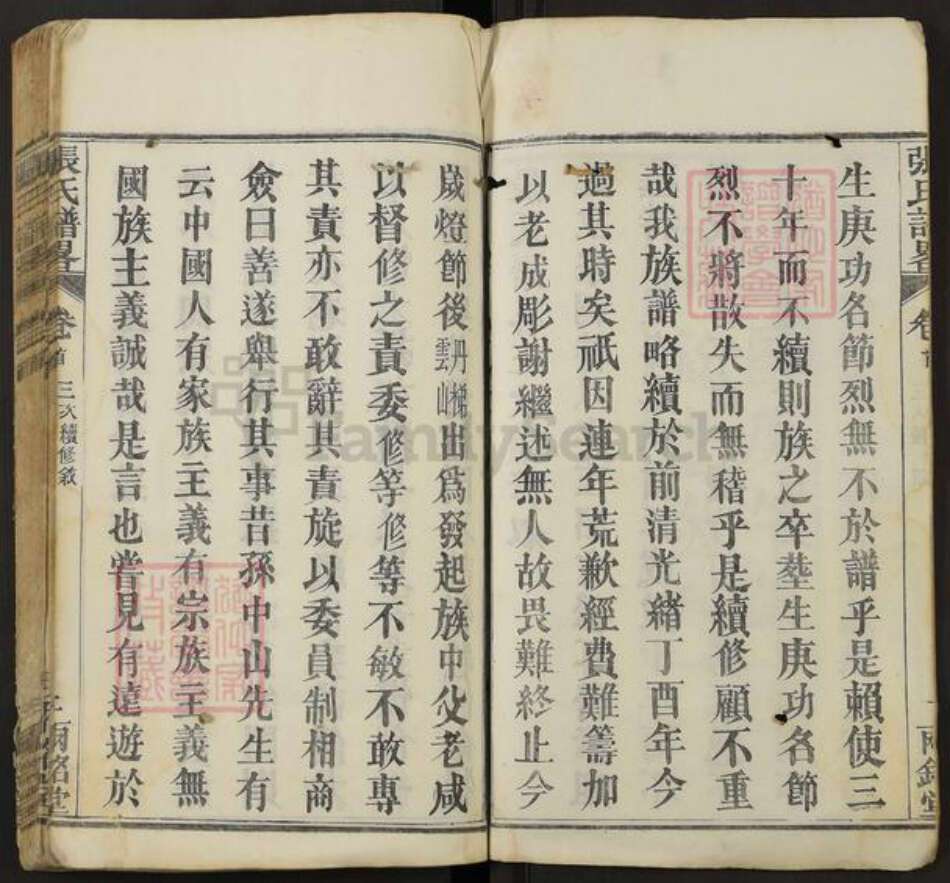 生庚功名節烈無不於譜乎是賴使三
十年而不續則族之卒塟生庚功名節
烈不將散失而無稽乎是續修顧不重
哉我族譜略續於前清光緒丁酉年今
過其時矣祇因連年荒歉經費難籌加
以老成彫謝繼述無人故畏難終止今
歲燈節後丹梯雲山出爲發起族中父老咸
以督修之責委修等修等不敏不敢專
其責亦不敢辭其責旋以委員制相商
僉曰善遂舉行其事昔孫中山先生有
云中國人有家族主義有宗族主義無
國族主義誠哉是言也嘗見有遠遊於
張氏譜畧 卷首 三次續修敘
兩銘堂
張氏譜畧 卷首
兩銘堂
FamilySearch